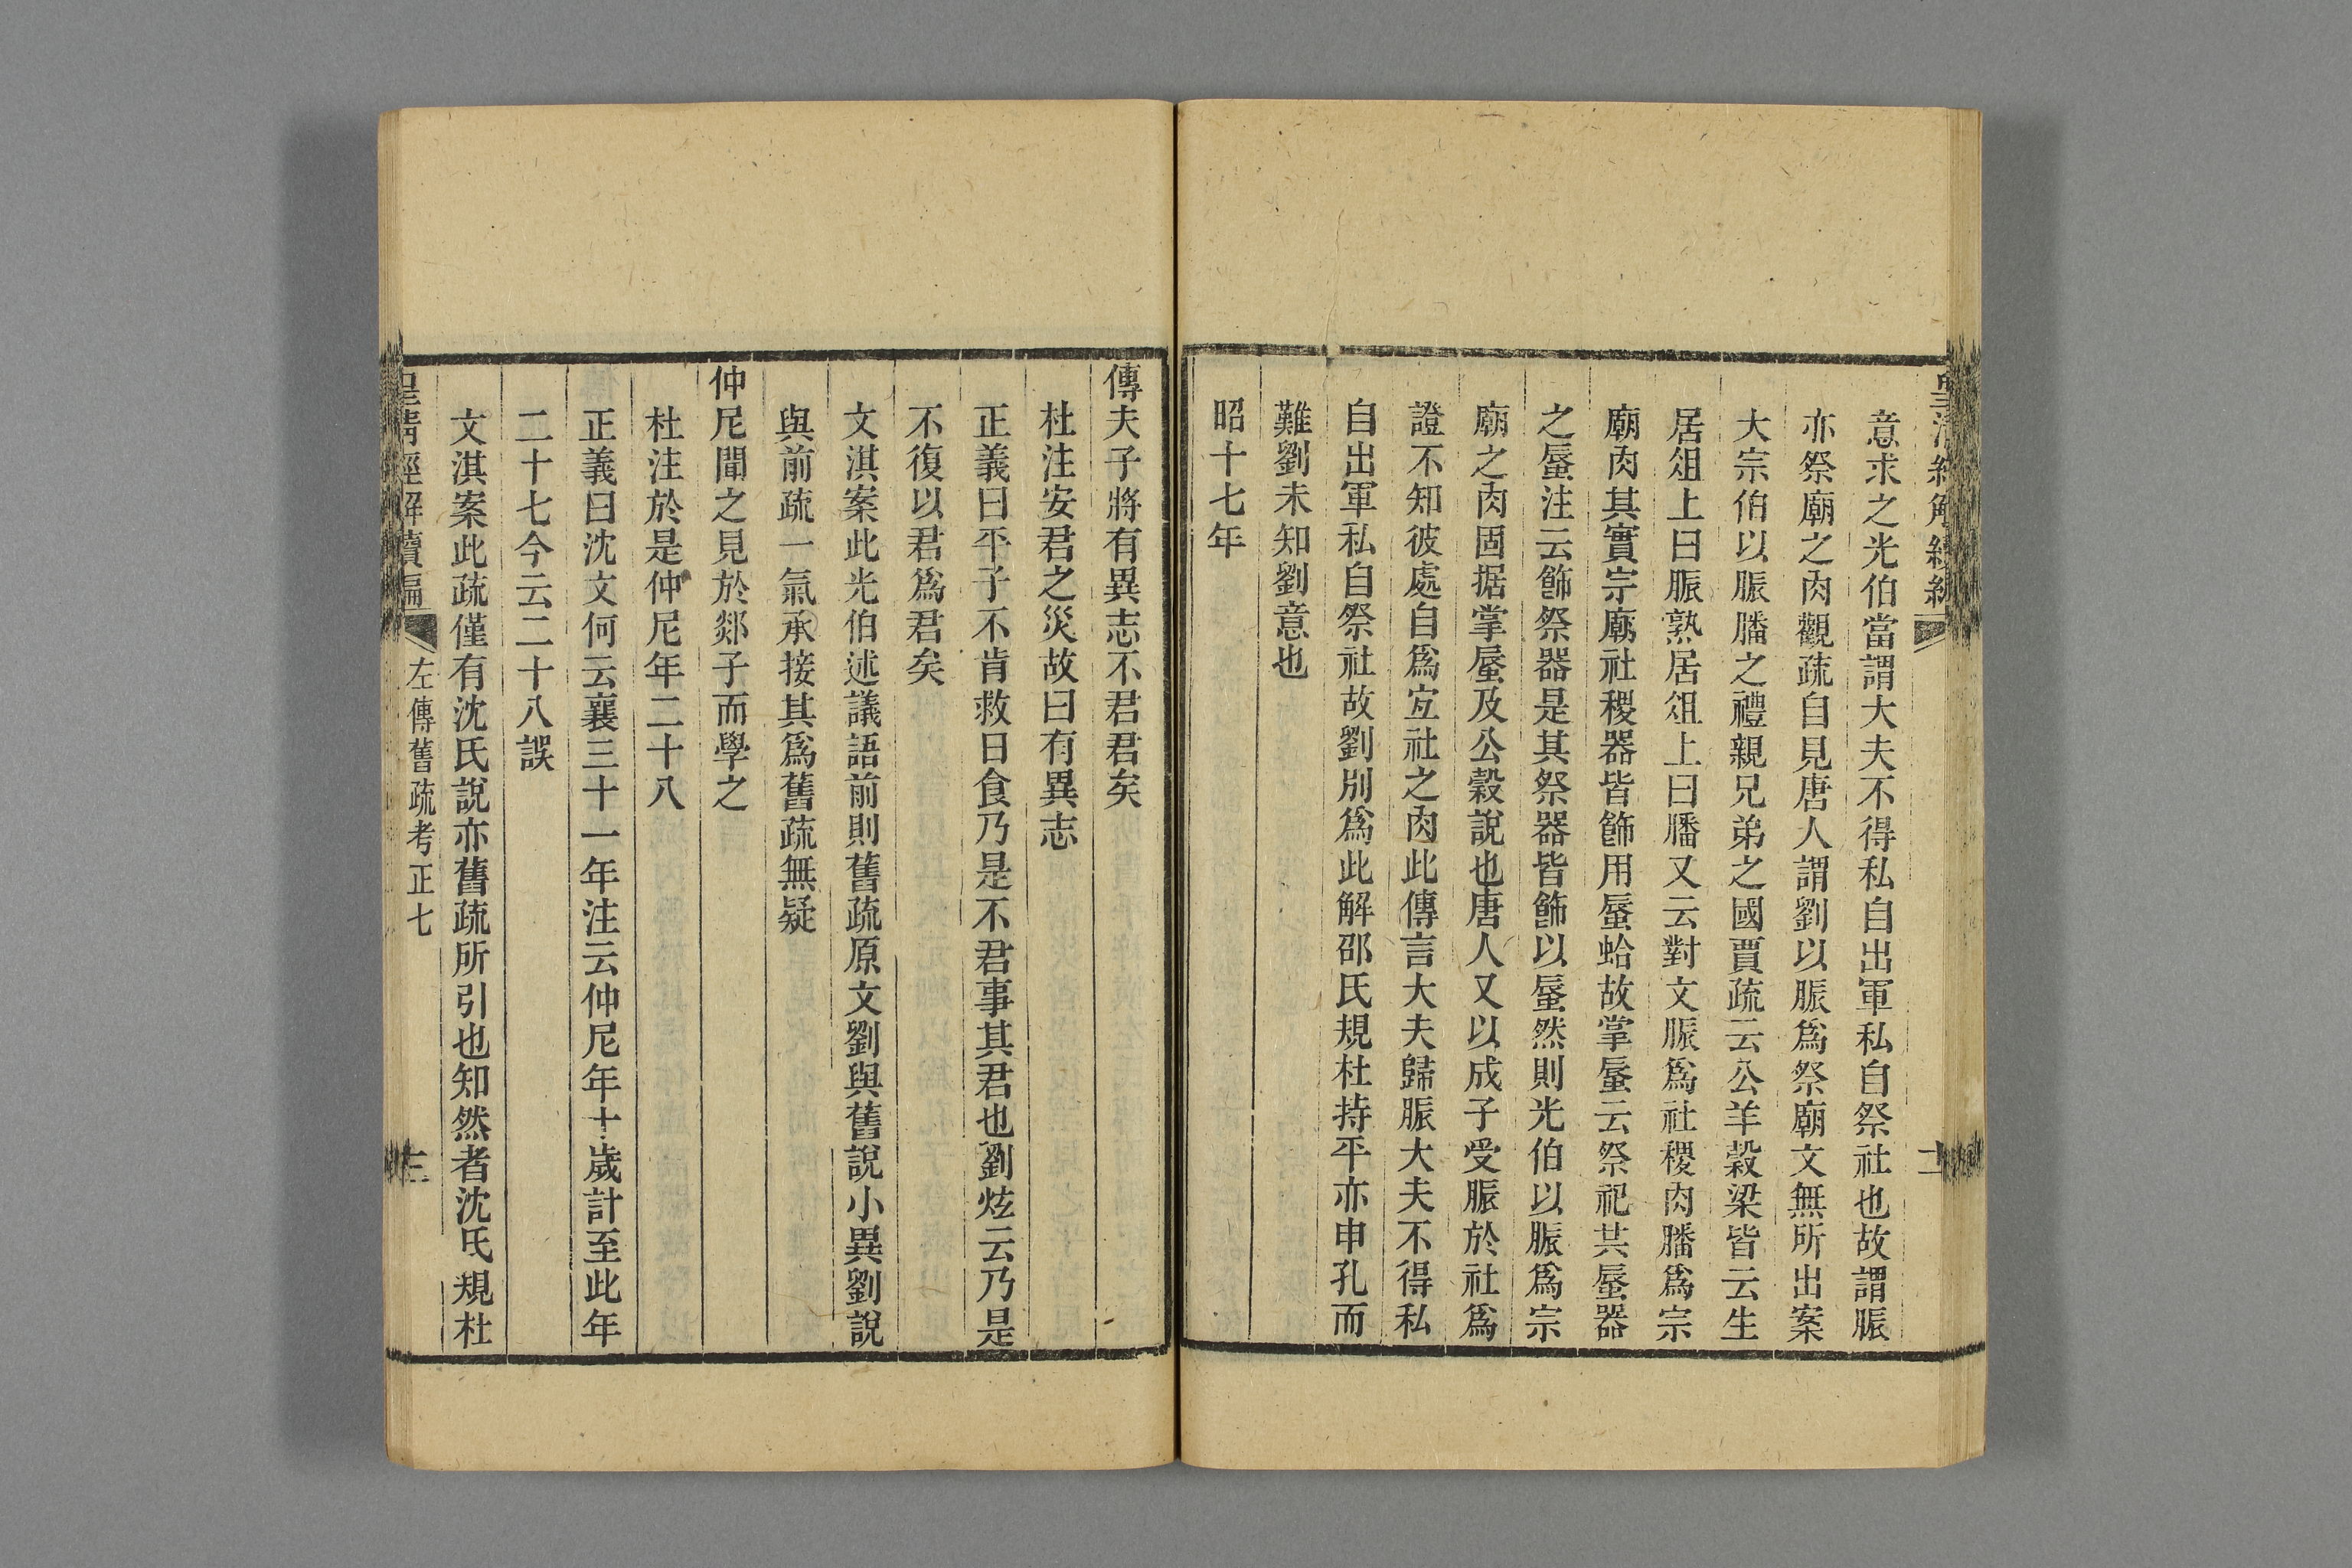 意求之光伯當謂大夫不得私自出軍私自祭社也故謂脤
亦祭廟之肉觀疏自見唐人謂劉以脤爲祭廟文無所出案
大宗伯以脤膰之禮親兄弟之國賈疏云公羊穀梁皆云生
居俎上曰脤熟居俎上曰膰又云對文脤爲社稷肉膰爲宗
廟肉其實宗廟社稷器皆飾用蜃蛤故掌蜃云祭祀共蜃器
之蜃注云飾祭器是其祭器皆飾以蜃然則光伯以脤爲宗
廟之肉固据掌蜃及公穀說也唐人又以成子受脤於社爲
證不知彼處自爲宐社之肉此傳言大夫歸脤大夫不得私
自出軍私自祭社故劉別爲此解邵氏規杜持平亦申孔而
難劉未知劉意也
昭十七年
傳夫子將有異志不君君矣
杜注安君之災故曰有異志
正義曰平子不肯救日食乃是不君事其君也劉炫云乃是
不復以君爲君矣
文淇案此光伯述議語前則舊疏原文劉與舊說小異劉說
與前疏一氣承接其爲舊疏無疑
仲尼聞之見於郯子而學之
杜注於是仲尼年二十八
正義曰沈文何云襄三十一年注云仲尼年十歲計至此年
二十七今云二十八誤
文淇案此疏僅有沈氏說亦舊疏所引也知然者沈氏規杜
皇清經解續編
左傳舊疏考正七